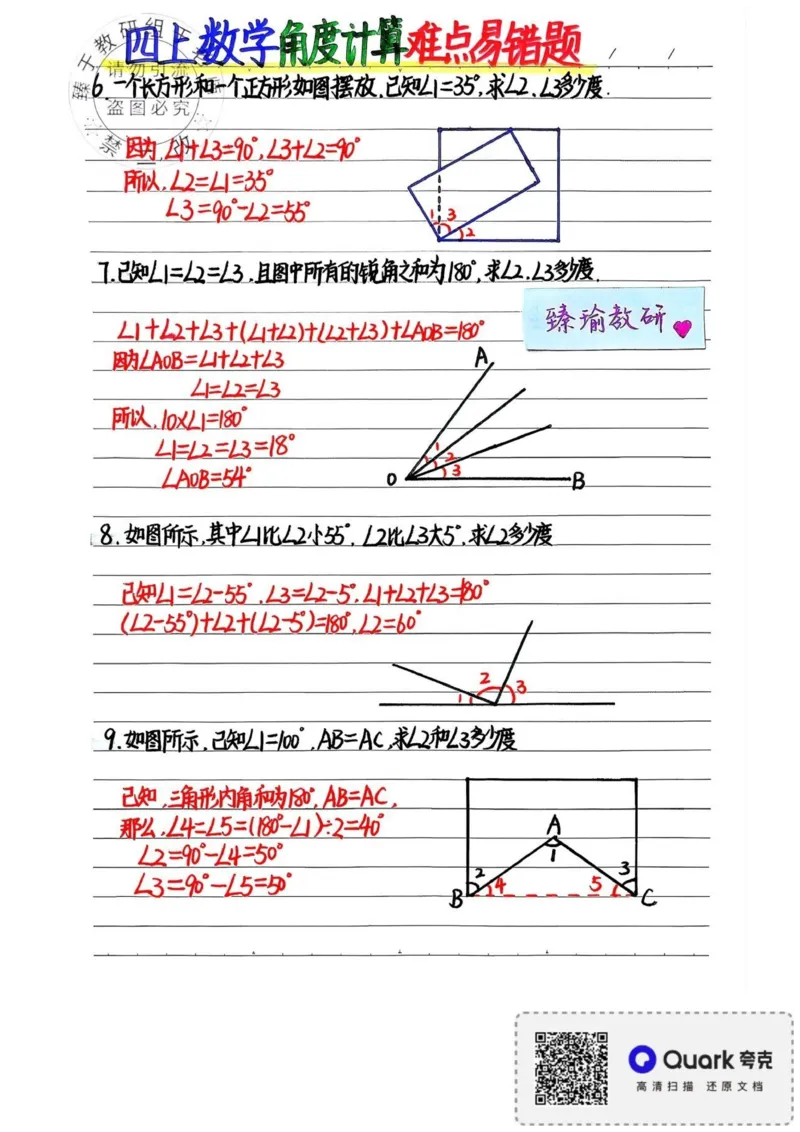 四上数学角度计算难点易错题
臻于教研组
请勿引流
盗图必究
6.一个长方形和一个正方形如图摆放.已知∠1=35°,求∠2.∠3多少度.
因为,∠1+∠3=90°,∠3+∠2=90°
所以,∠2=∠1=35°
∠3=90°-∠2=55°
1 3
2
7.已知∠1=∠2=∠3,且图中所有的锐角之和为180°,求∠2.∠3多少度.
臻瑜教研
∠1+∠2+∠3+(∠1+∠2)+(∠2+∠3)+∠AOB=180°
因为∠AOB=∠1+∠2+∠3
∠1=∠2=∠3
所以,10×∠1=180°
∠1=∠2=∠3=18°
∠AOB=54°
A
1
2
3
O
B
8.如图所示,其中∠1比∠2小55°,∠2比∠3大5°,求∠2多少度
已知∠1=∠2-55°,∠3=∠2-5°,∠1+∠2+∠3=180°
(∠2-55°)+∠2+(∠2-5°)=180°,∠2=60°
2
1
3
9.如图所示,已知∠1=100°,AB=AC,求∠2和∠3多少度
已知,三角形内角和为180°,AB=AC,
那么,∠4=∠5=(180°-∠1)÷2=40°
∠2=90°-∠4=50°
∠3=90°-∠5=50°
A
1
2
3
4
5
B
C
Quark夸克
高清扫描 还原文档